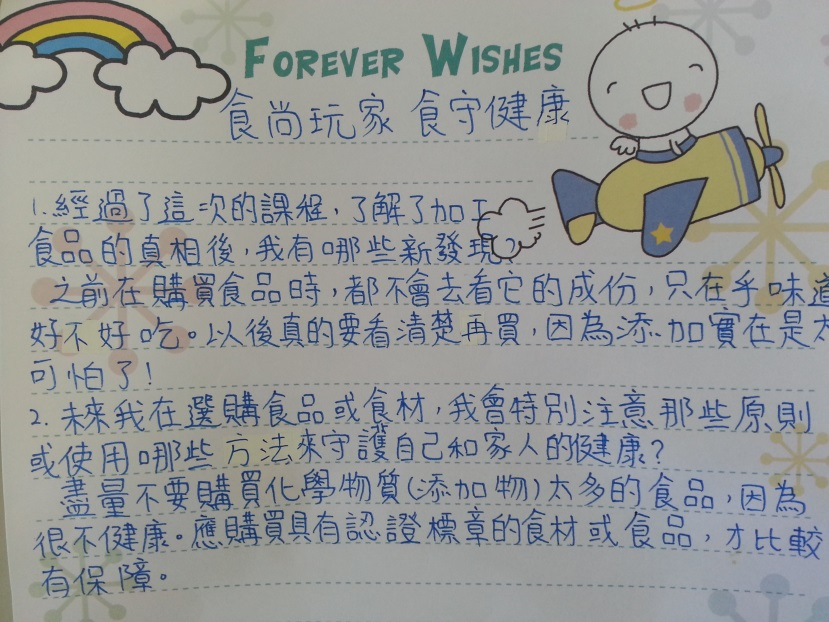 FOREVER WISHES
食尚玩家 食守健康
1.經過了這次的課程，了解了加工
食品的真相後，我有哪些新發現？
之前在購買食品時，都不會去看它的成份，只在乎味道
好不好吃。以後真的要看清楚再買，因為添加實在是太
可怕了！
2. 未來我在選購食品或食材，我會特別注意那些原則
或使用哪些方法來守護自己和家人的健康？
盡量不要購買化學物質(添加物)太多的食品，因為
很不健康。應購買具有認證標章的食材或食品，才比較
有保障。